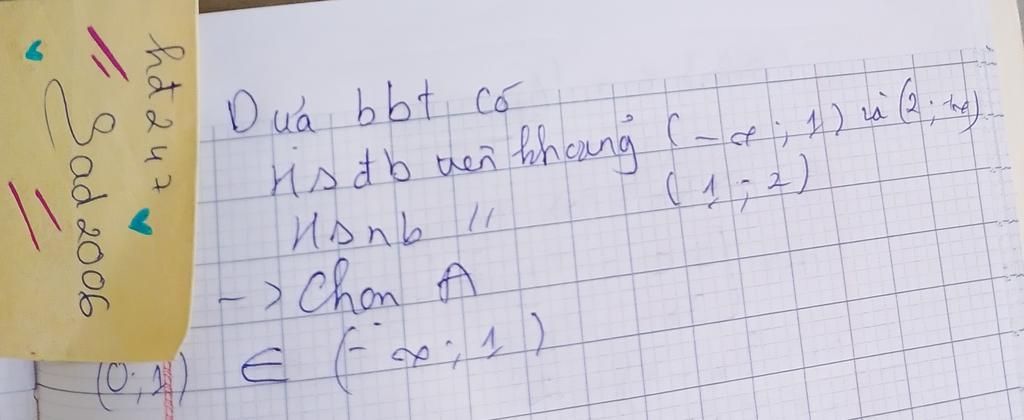 hđ 247
Sad2006
Dựa bbt có
HSđb trên khoảng (-∞; 1) và (2; +∞)
HSnb // (1; 2)
-> Chọn A
(0; 1) ∈ (-∞; 1)